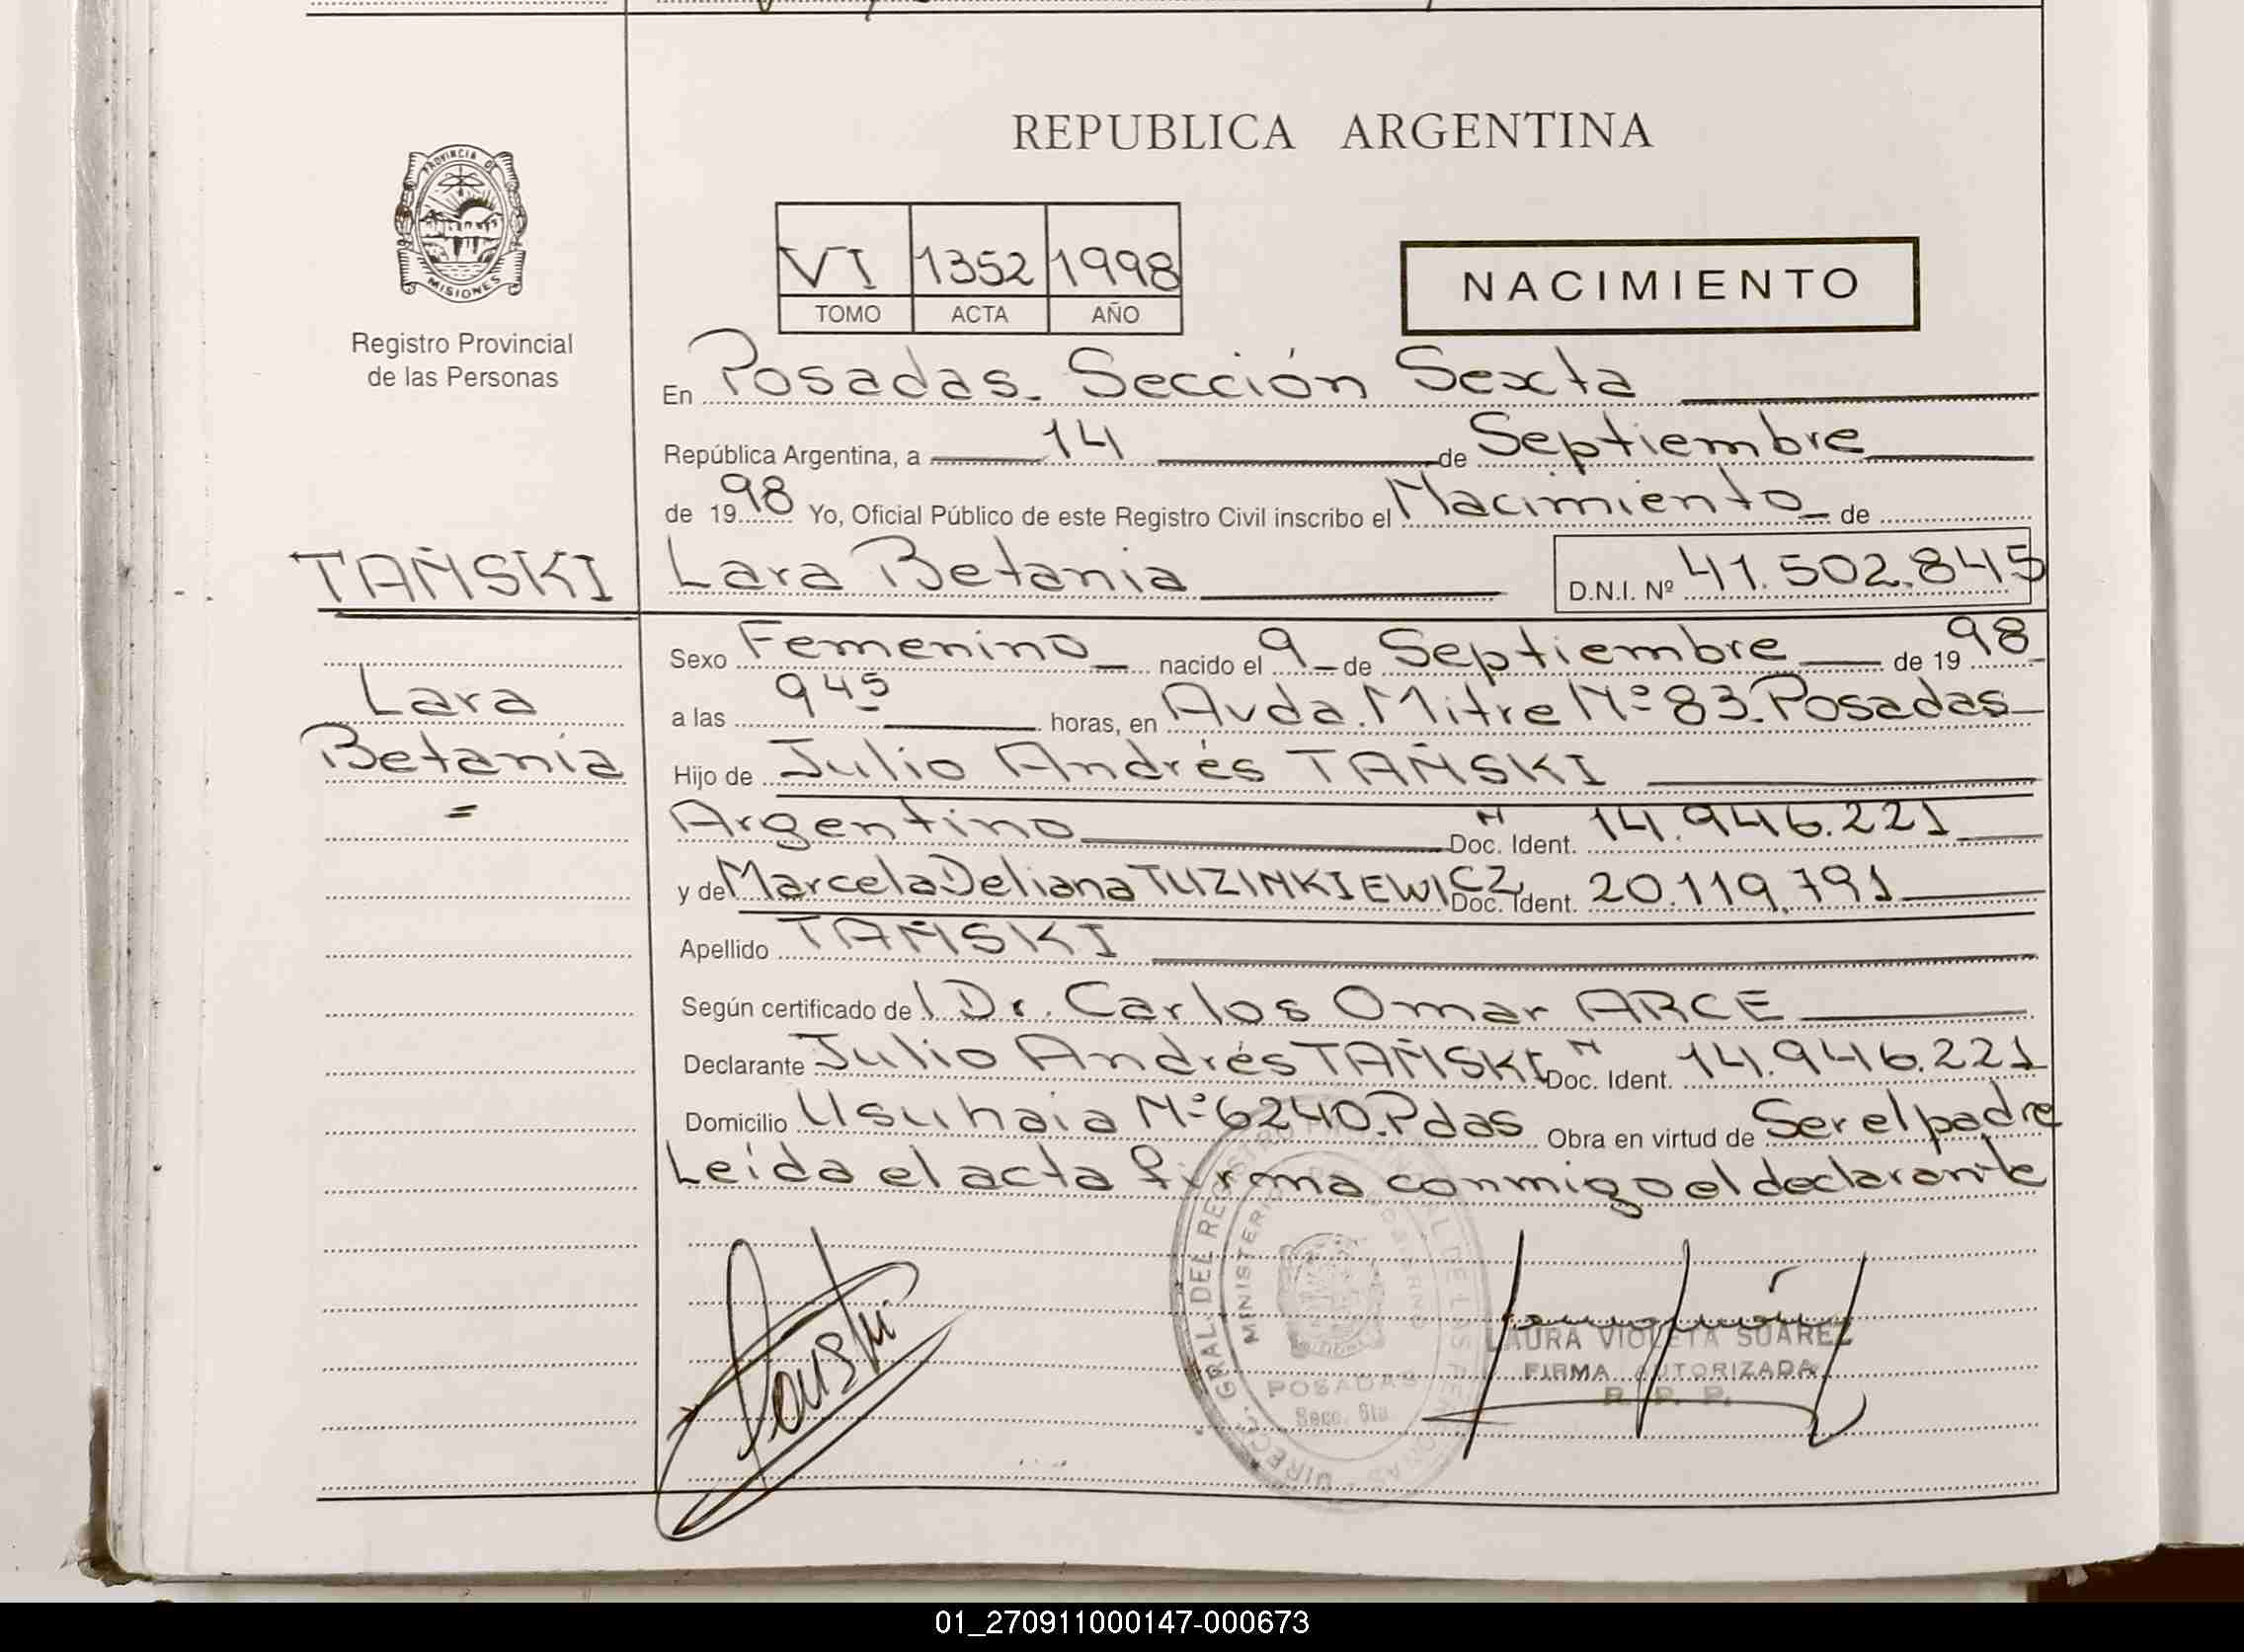 REPUBLICA ARGENTINA
PROVINCIA DE
MISIONES
Registro Provincial
de las Personas
VI 1352 1998
TOMO ACTA AÑO
NACIMIENTO
En Posadas. Sección Sexta
República Argentina, a 14 de Septiembre
de 1998 Yo, Oficial Público de este Registro Civil inscribo el Nacimiento de
TAÑSKI Lara Betania D.N.I. Nº 41.502.845
Sexo Femenino nacido el 9 de Septiembre de 1998
Lara
a las 9 45 horas, en Avda. Mitre Nº 83. Posadas
Betania
Hijo de Julio Andrés TAÑSKI
=
Argentino Doc. Ident. 14.946.221
y de Marcela Deliana TUZINKIEWICZ Doc. Ident. 20.119.791
Apellido TAÑSKI
Según certificado del Dr. Carlos Omar ARCE
Declarante Julio Andrés TAÑSKI Doc. Ident. 14.946.221
Domicilio Usuhaia Nº 6240. Pdas Obra en virtud de Ser el padre
Leída el acta firma conmigo el declarante
DIRECC. GRAL. DEL REGISTRO PROVINCIAL DE LAS PERSONAS
MINISTERIO DE GOBIERNO
POSADAS
Secc. 6ta
LAURA VIOLETA SUAREZ
FIRMA AUTORIZADA
R. P. P.
01_270911000147-000673